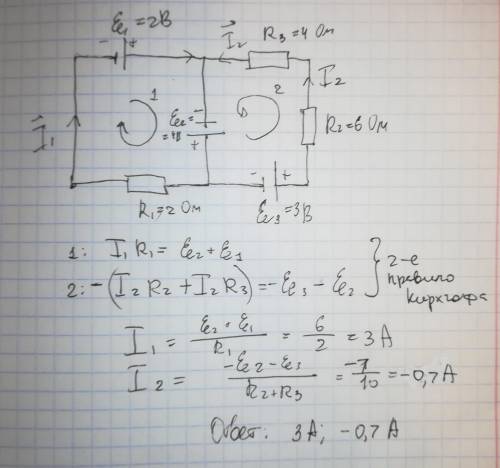 ℰ₁ = 2В
- +
I⃗₂ R₃ = 4 Ом
1 2 I₂
I⃗₁ ℰ₂ = 4В - + R₂ = 6 Ом
- +
R₁ = 2 Ом ℰ₃ = 3В
1: I₁R₁ = ℰ₂ + ℰ₁
2: -(I₂R₂ + I₂R₃) = -ℰ₃ - ℰ₂ } 2-е правило Кирхгофа
I₁ = (ℰ₂ + ℰ₁)/R₁ = 6/2 = 3 А
I₂ = (-ℰ₂ - ℰ₃)/(R₂ + R₃) = -7/10 = -0,7 А
Ответ: 3А; -0,7 А